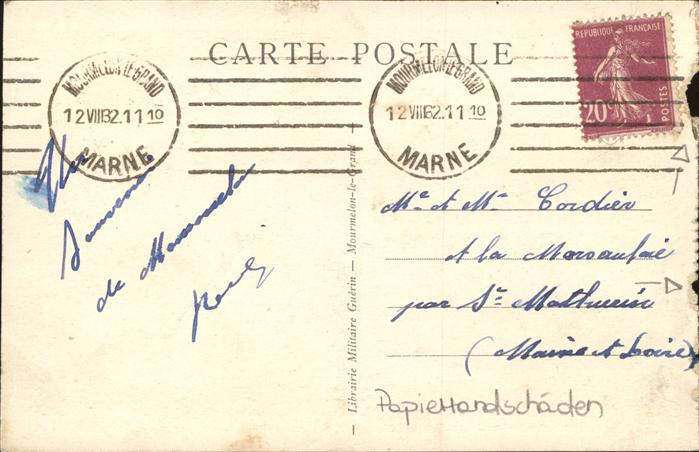 CARTE POSTALE
RÉPUBLIQUE FRANÇAISE
20c
POSTES
MOURMELON-LE-GRAND
12 VIII 32.11 10
MARNE
MOURMELON-LE-GRAND
12 VIII 32.11 10
MARNE
de Mourmelon
Librairie Militaire Guérin — Mourmelon-le-Grand —
Me et Me Cordier
A la
par St Mathurin
(Maine et Loire)
Papierrandschäden